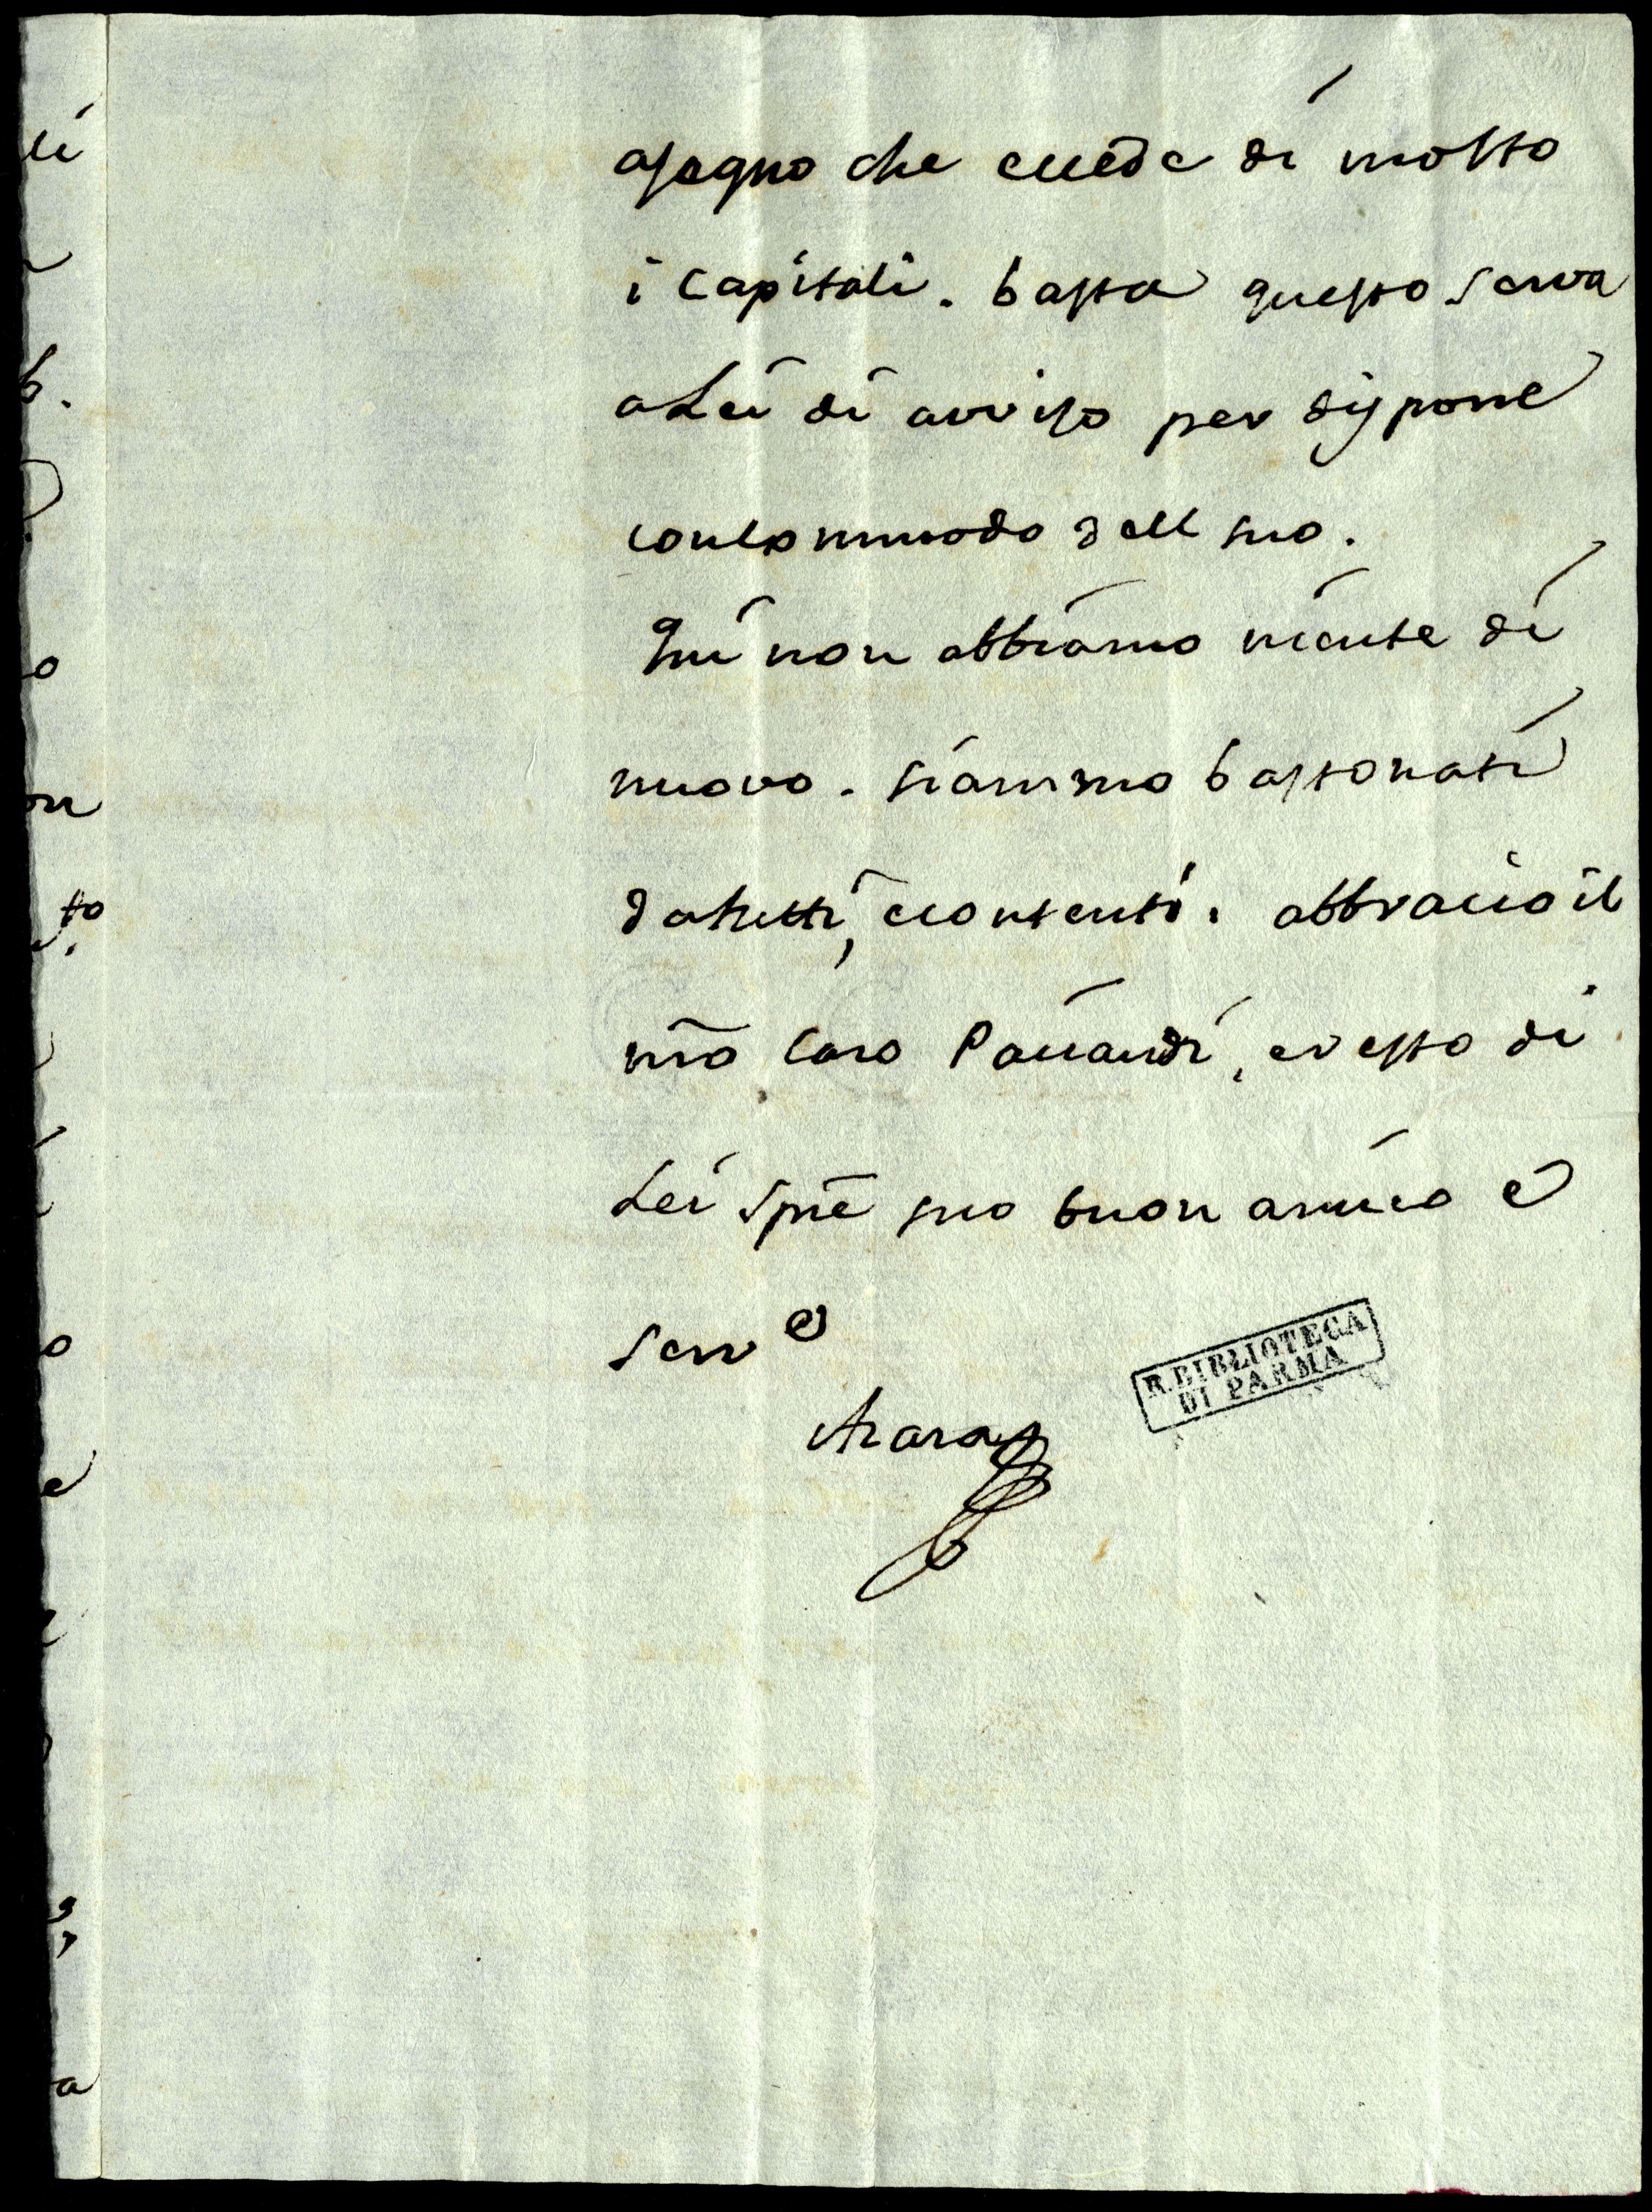 asegno che eccede di molto
i Capitali. basta questo serva
a Lei di aviso per disporre
concommodo dell suo.
Qui non abbiamo niente di
nuovo. siammo bastonati
datutti, econtenti. abbracio il
mio Caro Paciaudi, eresto di
Lei spre suo buon amico e
serv e
Azara
R. BIBLIOTECA
DI PARMA